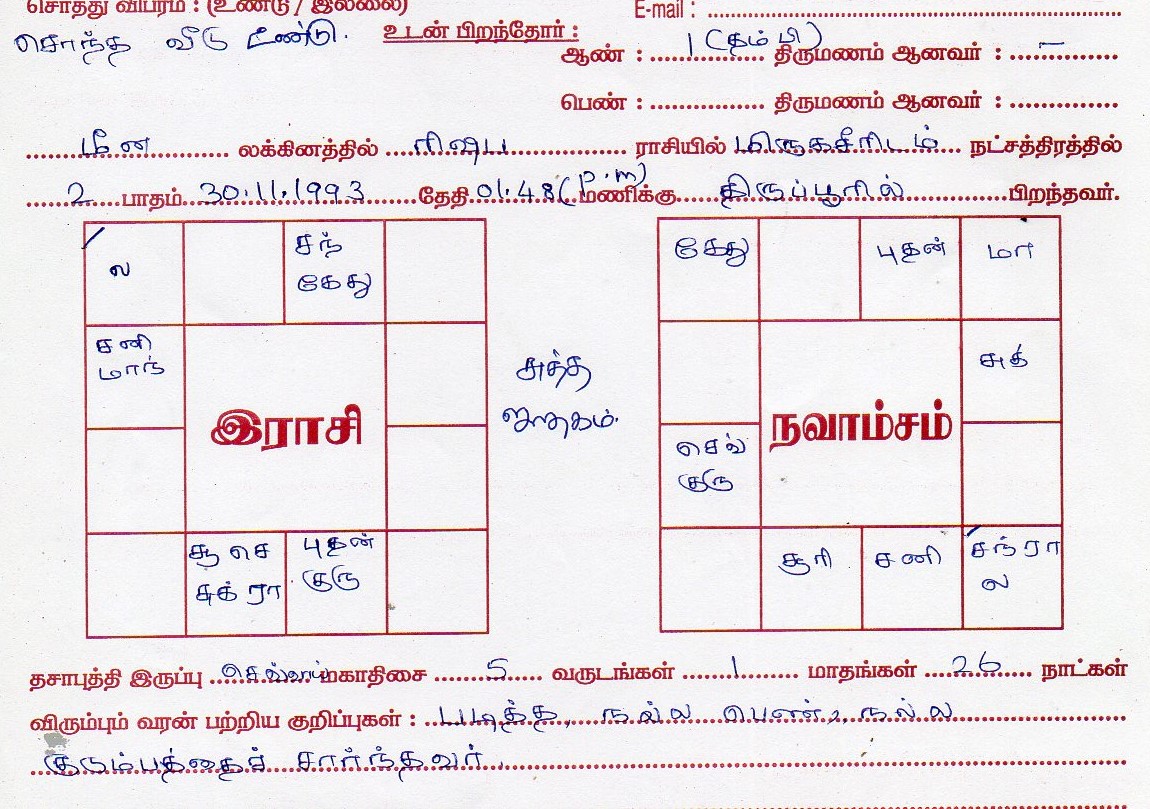 சொத்து விபரம் : (உண்டு / இல்லை)
E-mail :
சொந்த வீடு உண்டு.
உடன் பிறந்தோர் :
ஆண் : 1 (தம்பி) திருமணம் ஆனவர் : –
பெண் : திருமணம் ஆனவர் :
மீன லக்கினத்தில் ரிஷப ராசியில் மிருகசீரிடம் நட்சத்திரத்தில்
2 பாதம் 30.11.1993 தேதி 01.48 (p.m) மணிக்கு திருப்பூரில் பிறந்தவர்.
ல
சந்
கேது
சனி
மாந்
இராசி
சூ செ
சுக் ரா
புதன்
குரு
சுத்த
ஜாதகம்.
கேது
புதன்
மா
சுக்
செவ்
குரு
நவாம்சம்
சூரி
சனி
சந் ரா
ல
தசாபுத்தி இருப்பு செவ்வாய் மகாதிசை 5 வருடங்கள் 1 மாதங்கள் 26 நாட்கள்
விரும்பும் வரன் பற்றிய குறிப்புகள் : படித்த, நல்ல பெண், நல்ல
குடும்பத்தைச் சார்ந்தவர்.